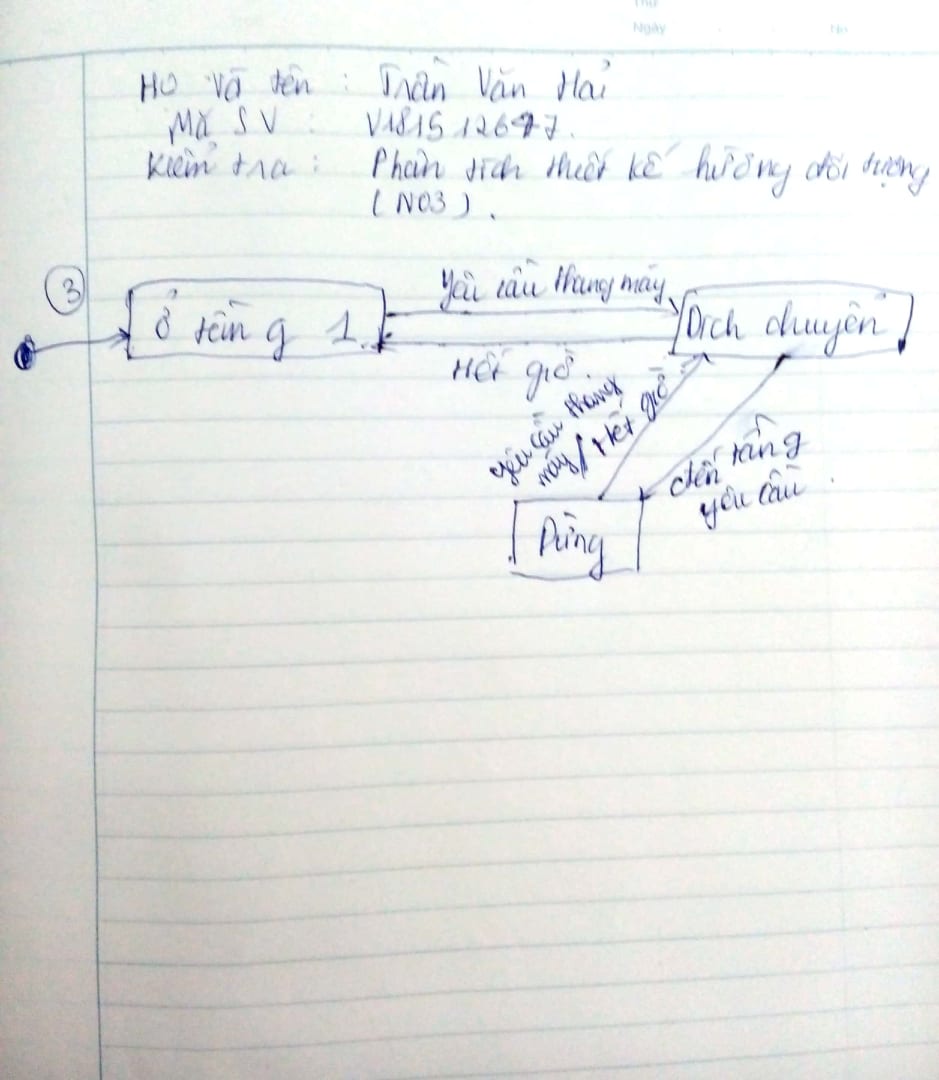 Thứ
Ngày No
Họ và tên : Trần Văn Hải
Mã SV : V181512647.
Kiểm tra : Phân tích thiết kế hướng đối tượng
(N03).
3
Ở tầng 1
Yêu cầu thang máy
Dịch chuyển
Hết giờ.
yêu cầu thang
máy / Hết giờ
đến tầng
yêu cầu.
Dừng